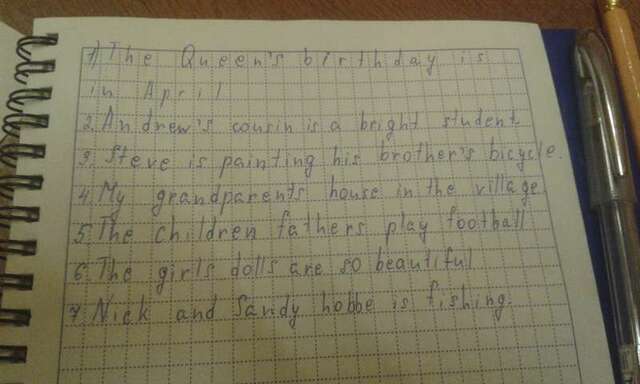 1) The Queen's birthday is
in April
2. Andrew's cousin is a bright student
3. Steve is painting his brother's bicycle.
4. My grandparents house in the village
5. The children fathers play football
6. The girl's dolls are so beautiful
7. Nick and Sandy hobbe is fishing.